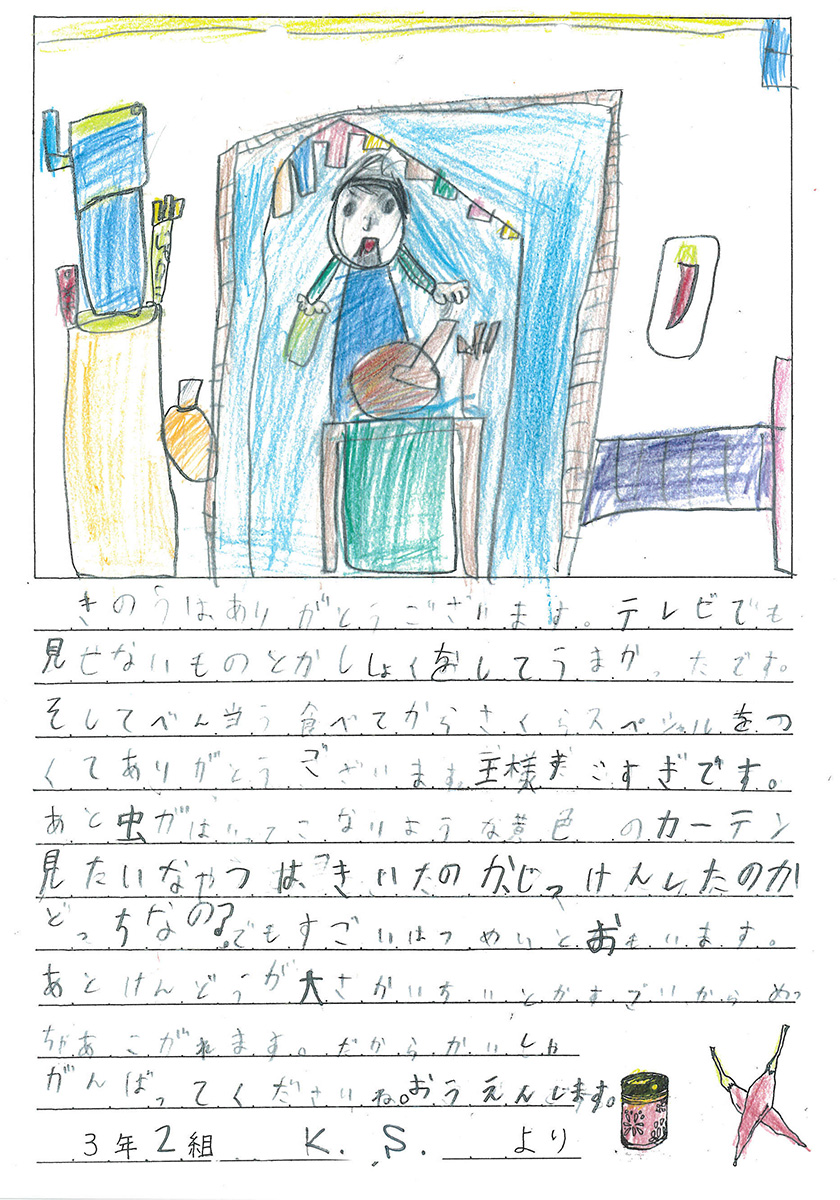 きのうはありがとうございます。テレビでも
見せないものとかししょくをしてうまかったです。
そしてべん当う食べてからさくらスペシャルをつ
くてありがとうございます。王様すごすぎです。
あと虫がはいってこなりような黄色のカーテン
見たいなやつは、きいたのか、じっけんしたのか
どっちなの?でもすごいはつめいとおもいます。
あとけんどうが大さかいちいとかすごいからめっ
ちゃあこがれます。だからかいしゃ
がんばってくださいね。おうえんします。
3年2組 K.S. より